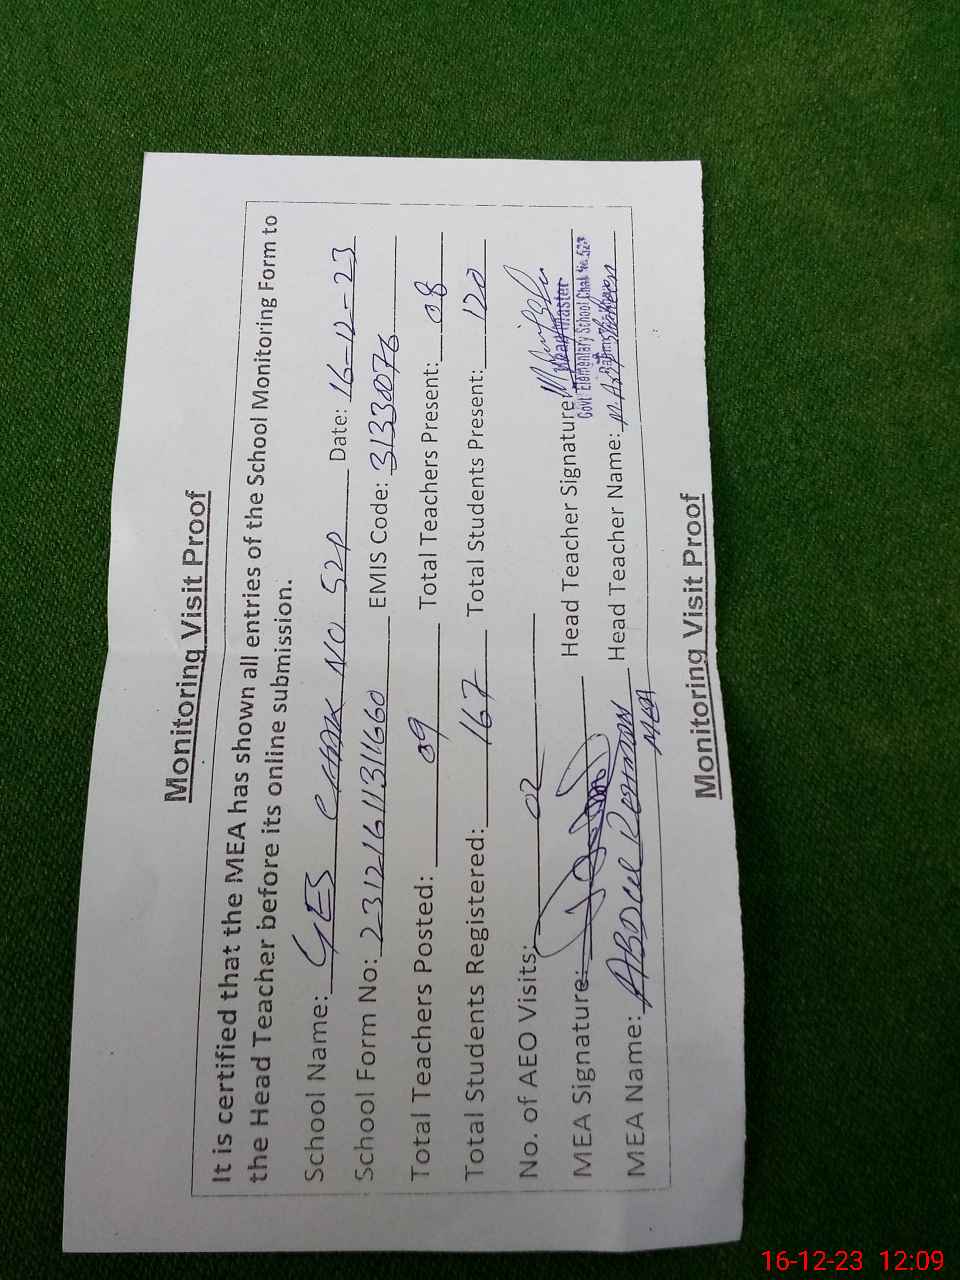 Monitoring Visit Proof
It is certified that the MEA has shown all entries of the School Monitoring Form to
the Head Teacher before its online submission.
School Name: GES CHAK NO 52P Date: 16-12-23
School Form No: 23121611311660 EMIS Code: 31330076
Total Teachers Posted: 09 Total Teachers Present: 08
Total Students Registered: 167 Total Students Present: 120
No. of AEO Visits: 02
MEA Signature: Head Teacher Signature:
Headmaster
Govt. Elementary School Chak No. 52P
MEA Name: ABDUL REHMAN Head Teacher Name:
MEA
Monitoring Visit Proof
16-12-23 12:09